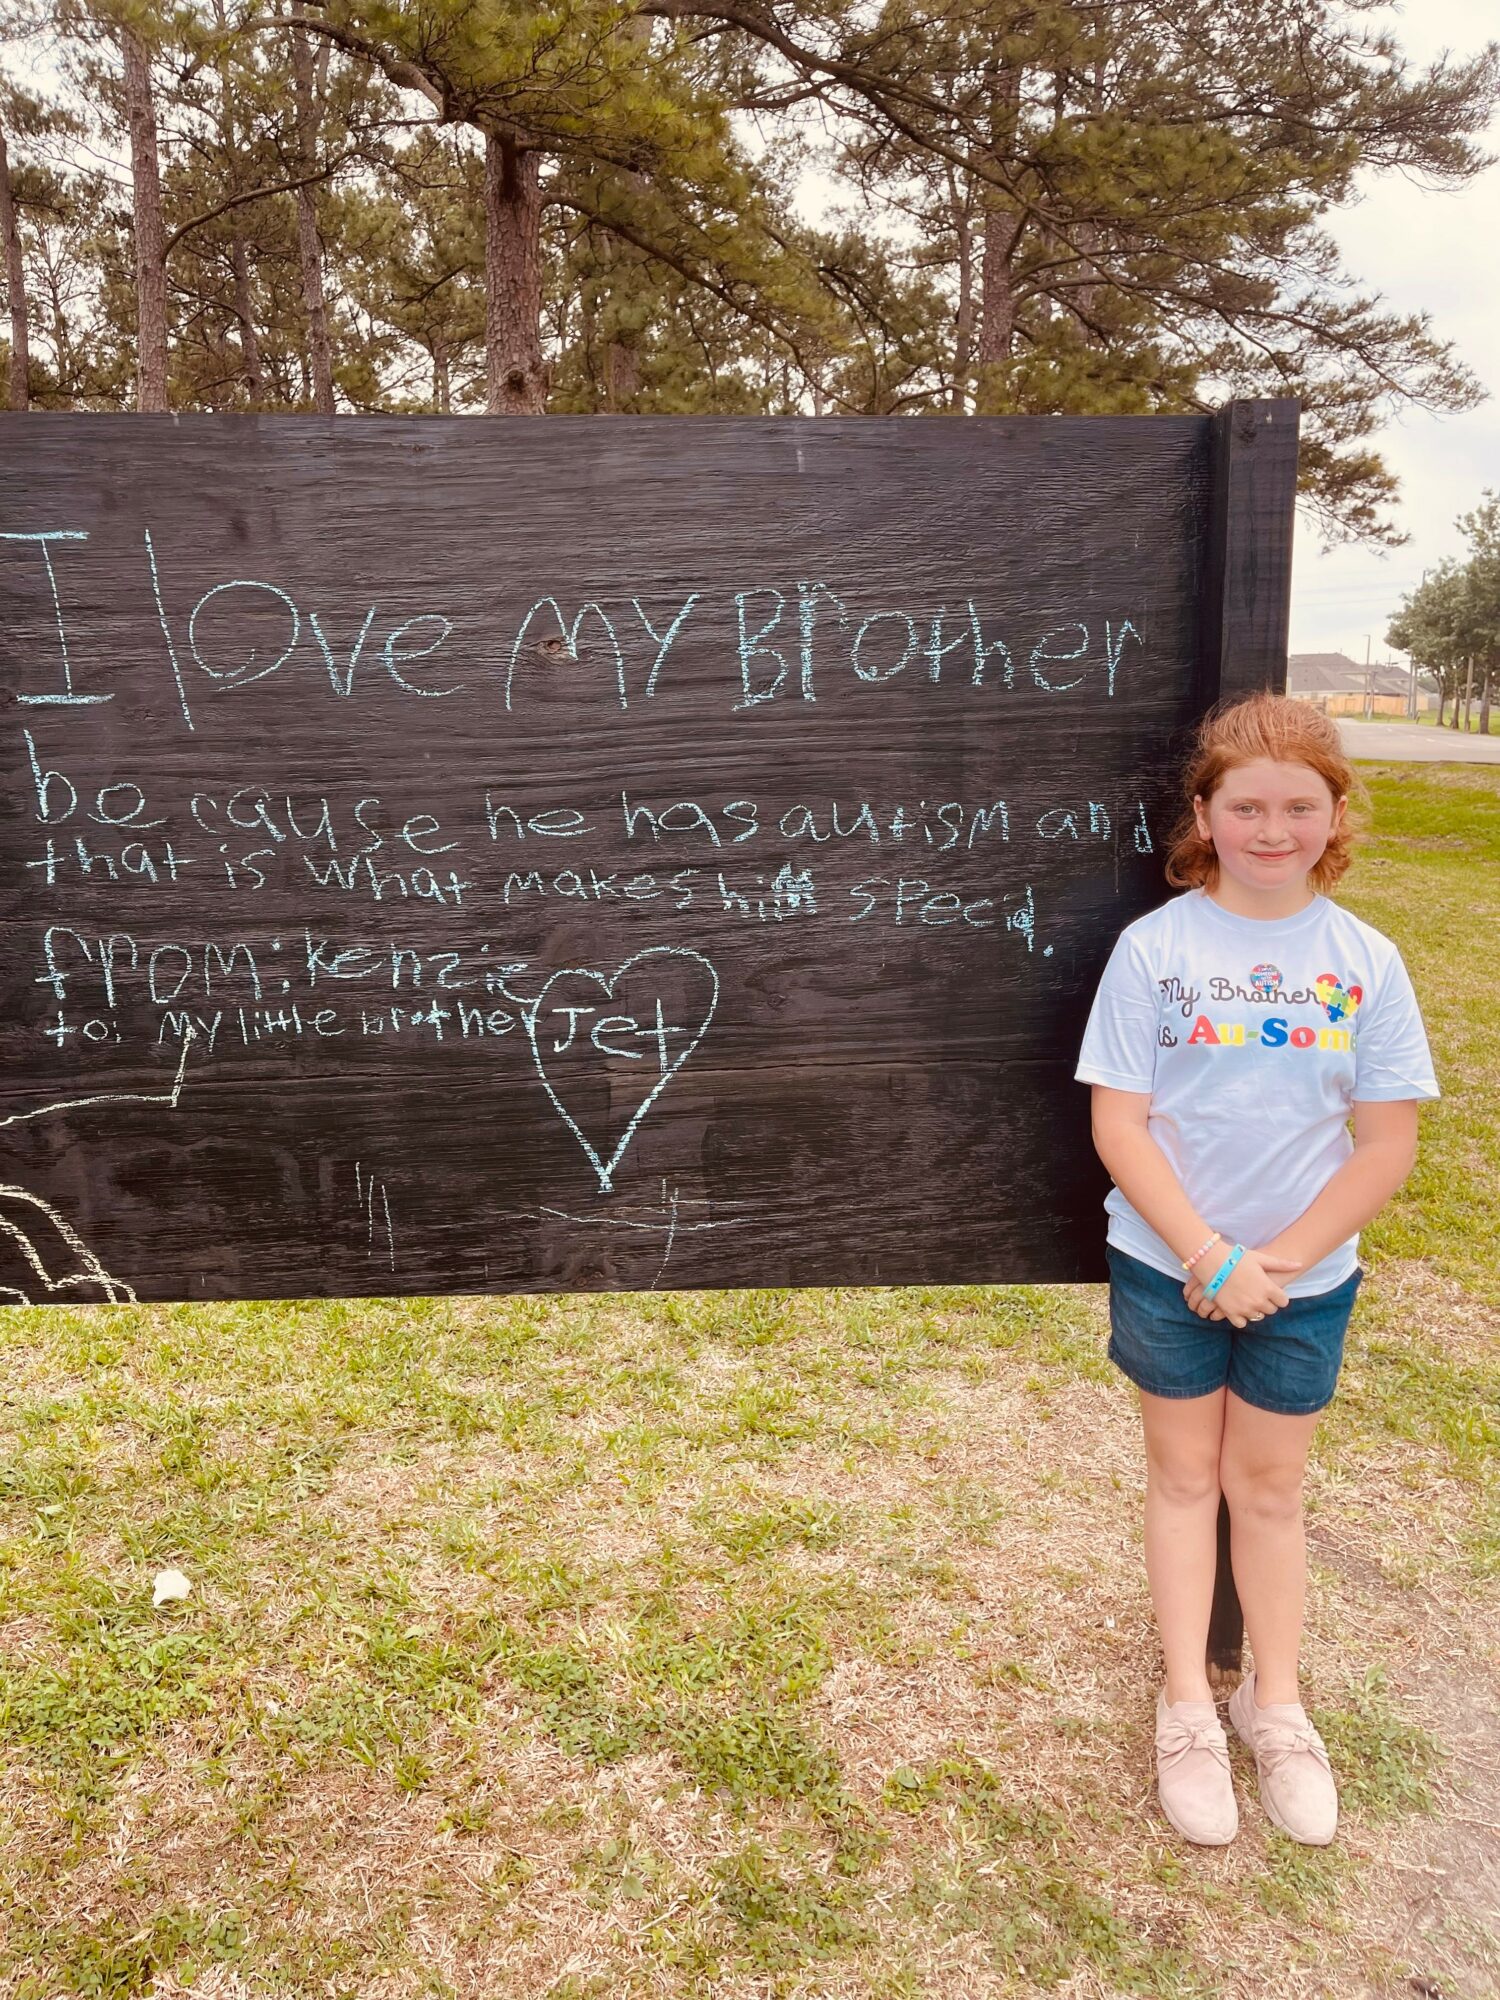 I love my Brother
because he has autism and
that is what makes him specia.
from: kenzie
to: my little brother Jet
I LOVE
SOMEONE
WITH
AUTISM
My Brother
is Au-Some